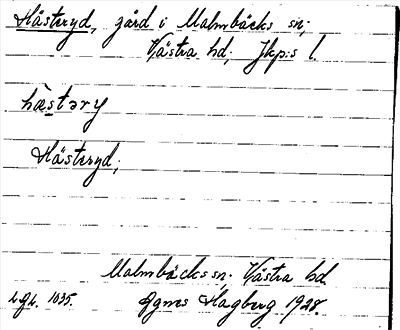 Hästeryd, gård i Malmbäcks sn;
Västra hd, Jkp:s l.
hæstəry
Hästeryd;
Malmbäcks sn. Västra hd.
Agnes Hagberg 1928.